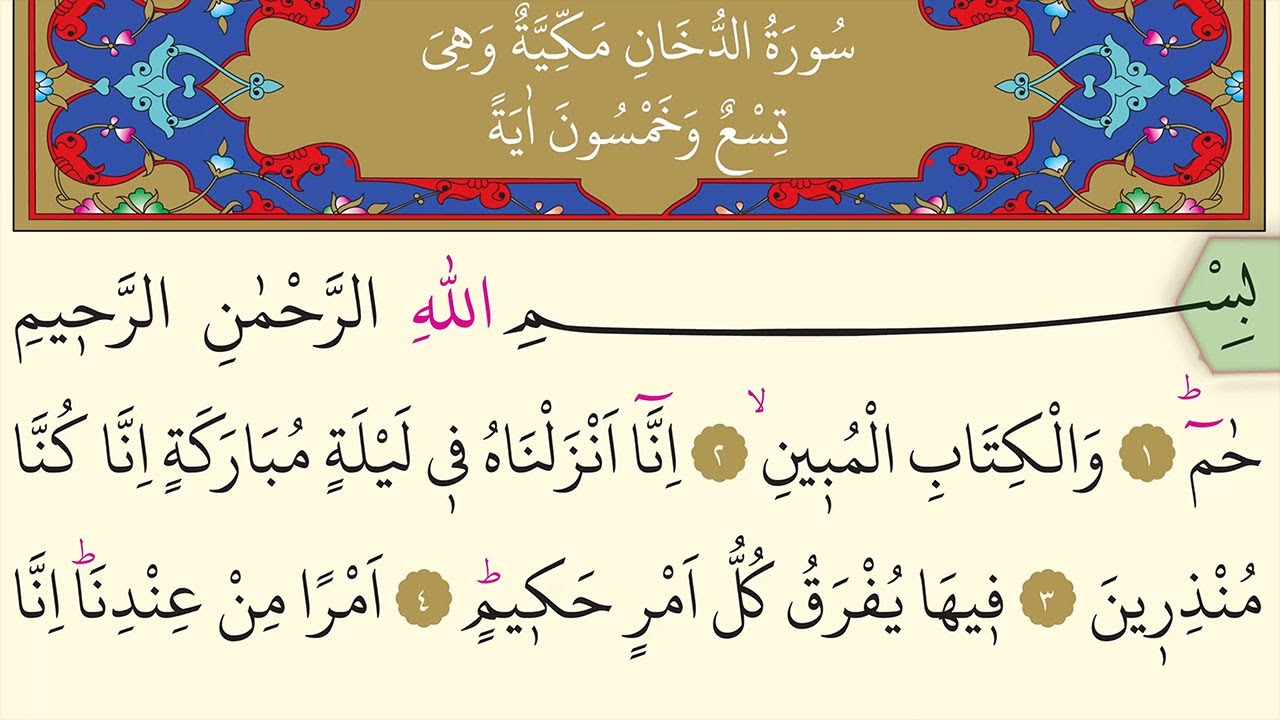 سُورَةُ الدُّخَانِ مَكِّيَّةٌ وَهِىَ
تِسْعٌ وَخَمْسُونَ اٰيَةً
بِسْمِ اللّٰهِ الرَّحْمٰنِ الرَّح۪يمِ
حٰمٓ ۜ ﴿١﴾ وَالْكِتَابِ الْمُب۪ينِ ۙ ﴿٢﴾ اِنَّٓا اَنْزَلْنَاهُ ف۪ى لَيْلَةٍ مُبَارَكَةٍ اِنَّا كُنَّا
مُنْذِر۪ينَ ﴿٣﴾ ف۪يهَا يُفْرَقُ كُلُّ اَمْرٍ حَك۪يمٍ ؕ ﴿٤﴾ اَمْرًا مِنْ عِنْدِنَا ؕ اِنَّا